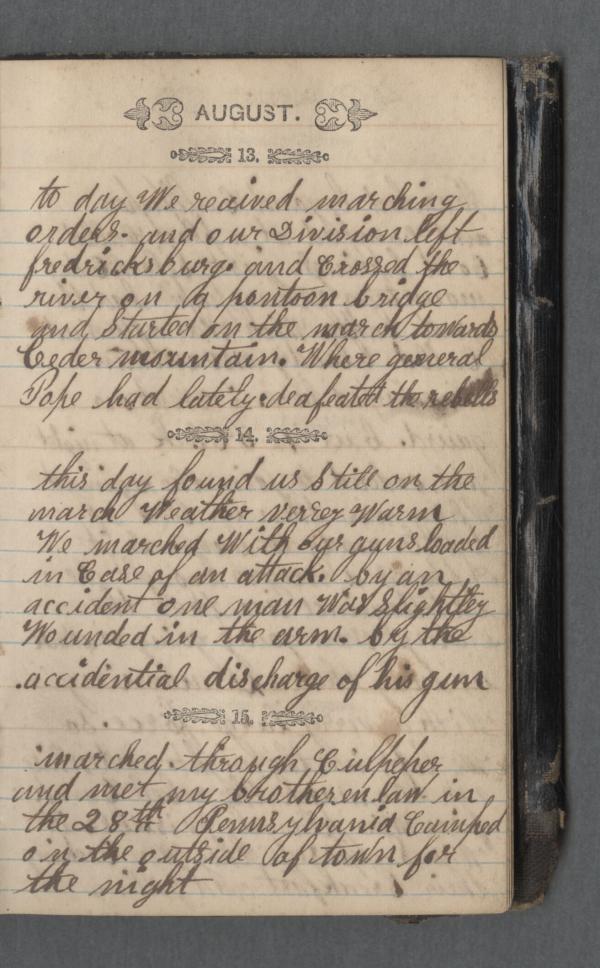 AUGUST.
13.
to day We recived marching
orders. and our Division left
fredricksburg. and Crossed the
river on a pontoon bridge
and Started on the march towards
Ceder mountain. Where general
Pope had lately deafeated the rebells
14.
this day found us Still on the
march Weather verrey Warm
We marched With our guns loaded
in Case of an attack. by an
accident one man Was Slightley
Wounded in the arm. by the
accidential discharge of his gun
15.
marched through Culpeper
and met my brother en law in
the 28th Pennsylvania Camped
on the outside of town for
the night